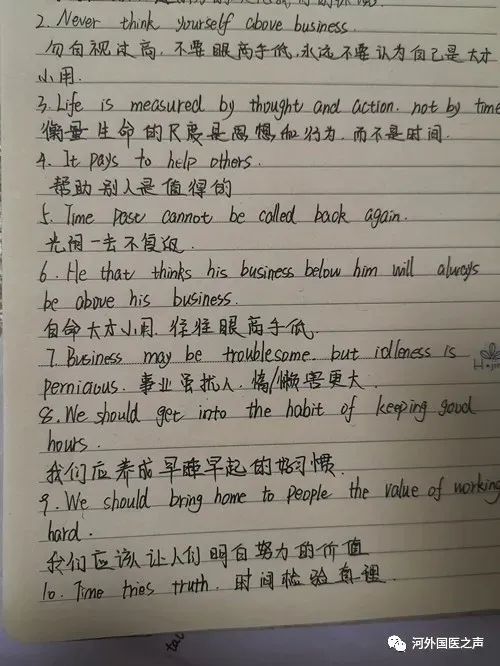 2. Never think yourself above business.
勿自视过高,不要眼高手低,永远不要认为自己是大才
小用.
3. Life is measured by thought and action. not by time
衡量生命的尺度是思想和行为,而不是时间.
4. It pays to help others.
帮助别人是值得的
5. Time past cannot be called back again.
光阴一去不复返.
6. He that thinks his business below him will always
be above his business.
自命大才小用,往往眼高手低.
7. Business may be troublesome. but idleness is
pernicious. 事业虽扰人,惰/懒害更大.
8. We should get into the habit of keeping good
hours.
我们应养成早睡早起的好习惯.
9. We should bring home to people the value of working
hard.
我们应该让人们明白努力的价值
10. Time tries truth. 时间检验真理.
河外国医之声